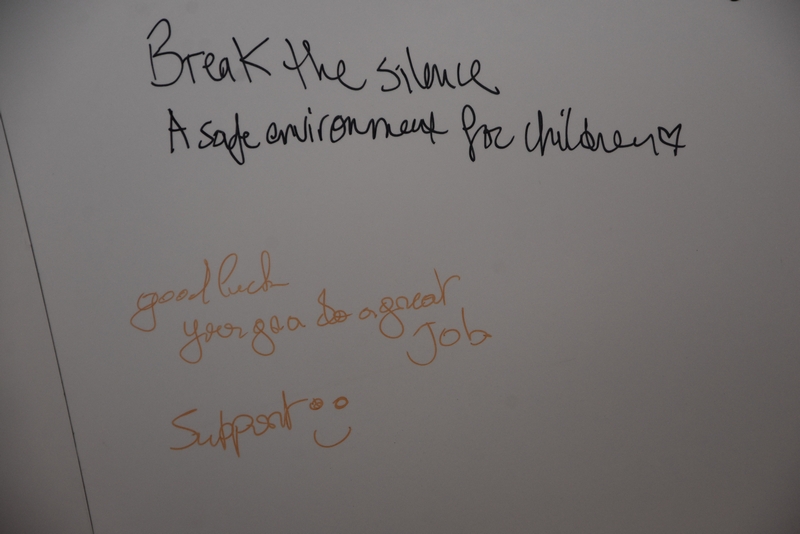 Break the silence
A safe environment for children ♡
good luck
your gaa do a great
Job
Support